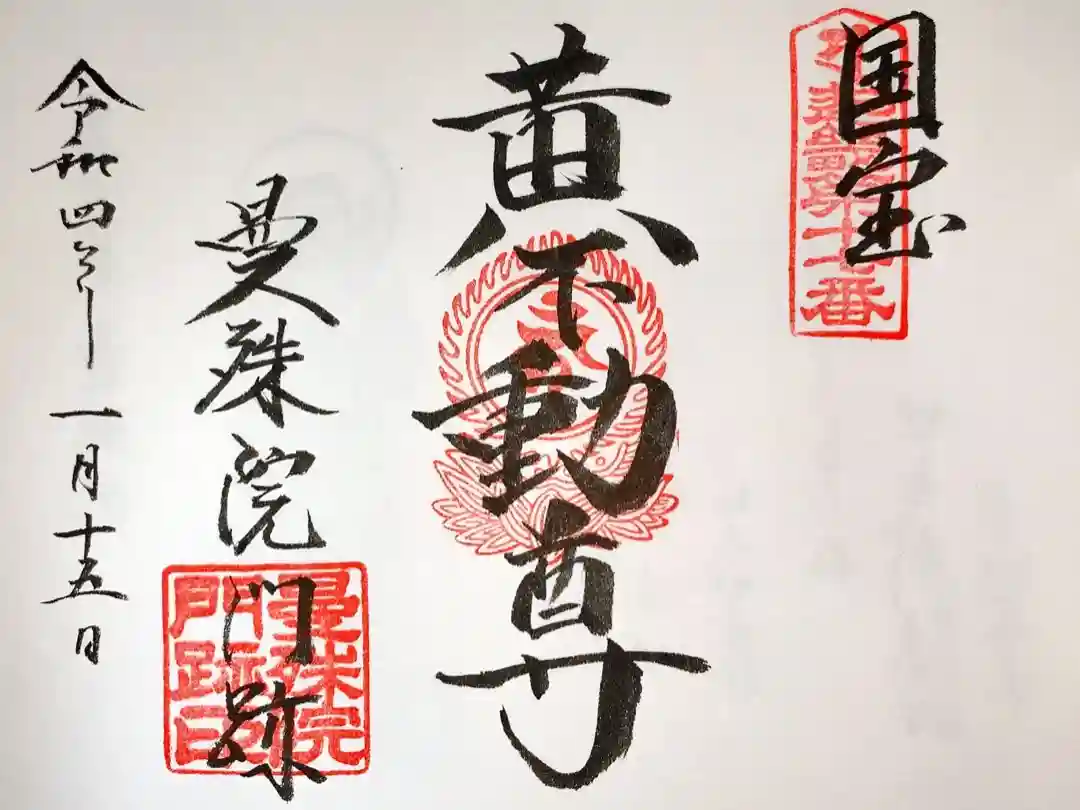 国宝
黄不動尊
曼殊院門跡
令和四年一月十五日
曼殊院
門跡印